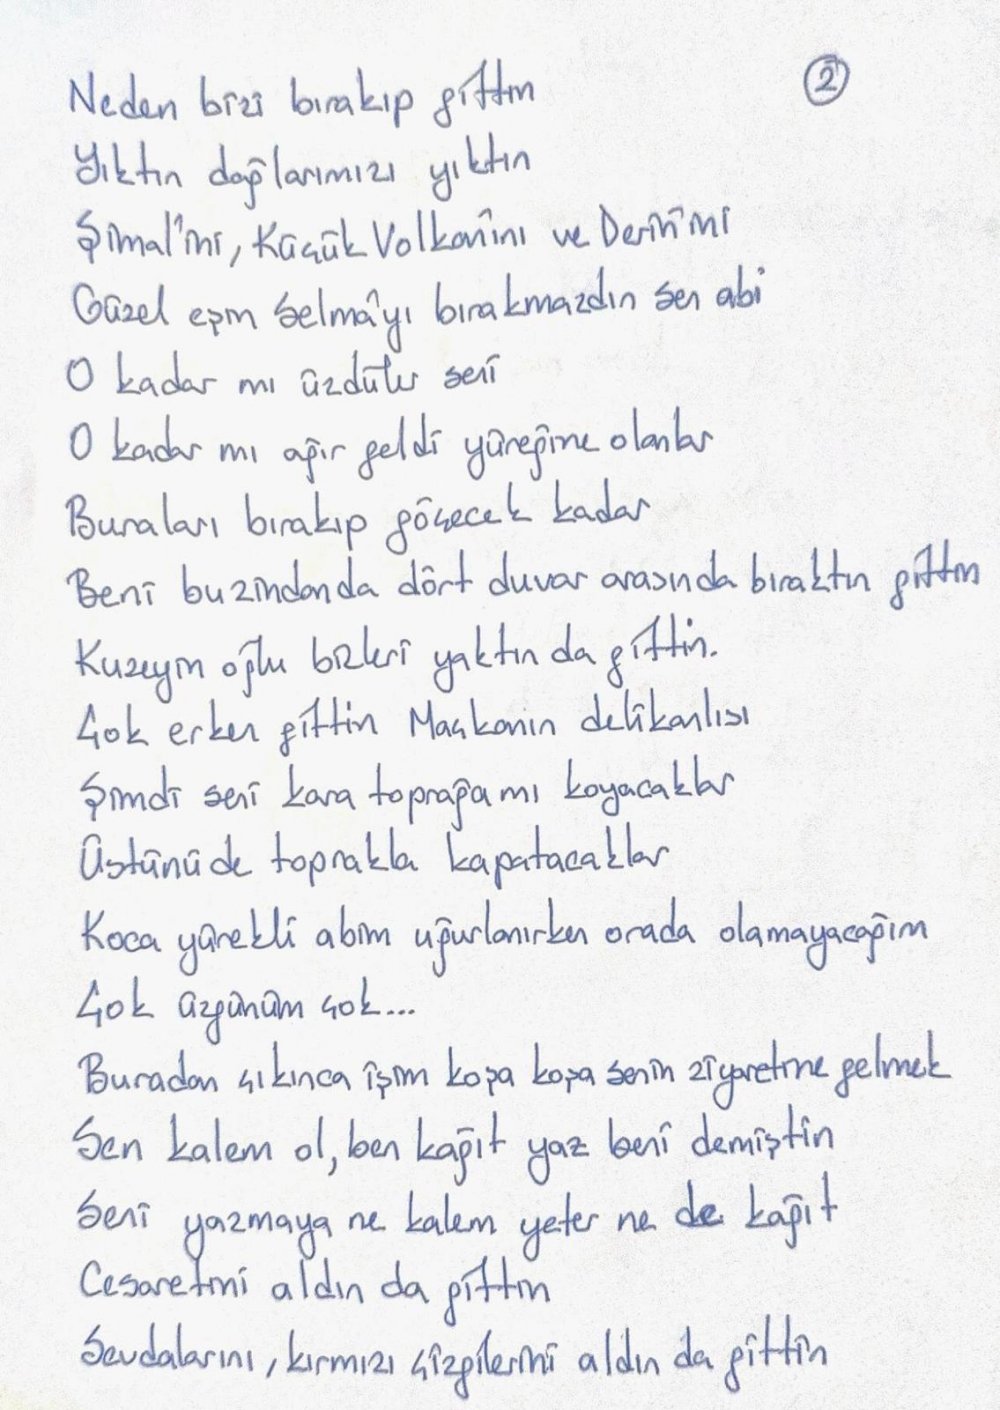 2
Neden bizi bırakıp gittin
Yıktın dağlarımızı yıktın
Şimal'ini, Küçük Volkan'ını ve Derin'ini
Güzel eşin Selma'yı bırakmazdın sen abi
O kadar mı üzdüler seni
O kadar mı ağır geldi yüreğine olanlar
Buraları bırakıp göçecek kadar
Beni bu zindanda dört duvar arasında bıraktın gittin
Kuzeyin oğlu bizleri yaktın da gittin.
Çok erken gittin Maçkanın delikanlısı
Şimdi seni kara toprağa mı koyacaklar
Üstünü de toprakla kapatacaklar
Koca yürekli abim uğurlanırken orada olamayacağım
Çok üzgünüm çok...
Buradan çıkınca işim koşa koşa senin ziyaretine gelmek
Sen kalem ol, ben kağıt yaz beni demiştin
Seni yazmaya ne kalem yeter ne de kağıt
Cesaretini aldın da gittin
Sevdalarını, kırmızı çizgilerini aldın da gittin